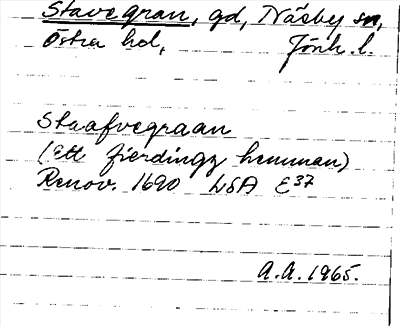 Stavegran, gd, Näsby sn,
Östra hd, Jönk. l.
Staafvegraan
(Ett fierdingz hemman)
Renov. 1690 LSA E37
A.A. 1965.